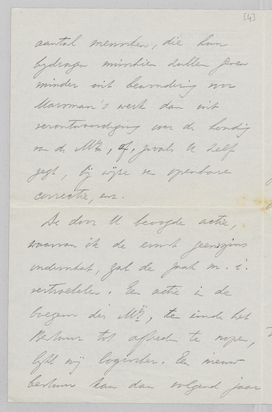 (4)
aantal menschen, die hun
bydragen misschien zullen geven
minder uit bewondering voor
Marsman's werk dan uit
verontwaardiging over de houding
van de Mij, of, zooals U zelf
zegt, bij wijze van openbare
correctie, enz.
De door U beoogde actie,
waarvan ik de ernst geenszins
onderschat, zal de zaak m. i.
vertroebelen. Een actie in de
boezem der Mij, ten einde het
Bestuur tot aftreden te nopen,
lijkt mij logischer. Een nieuw
bestuur kan dan volgend jaar